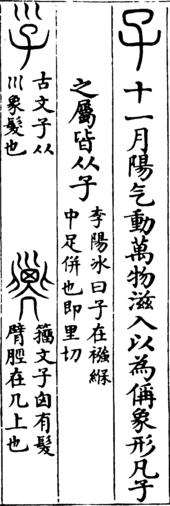 子 十一月陽气動萬物滋入以為偁象形凡子
之屬皆从子 李陽冰曰子在襁緥
中足併也即里切
古文子从
巛象髮也
籒文子囟有髮
臂脛在几上也